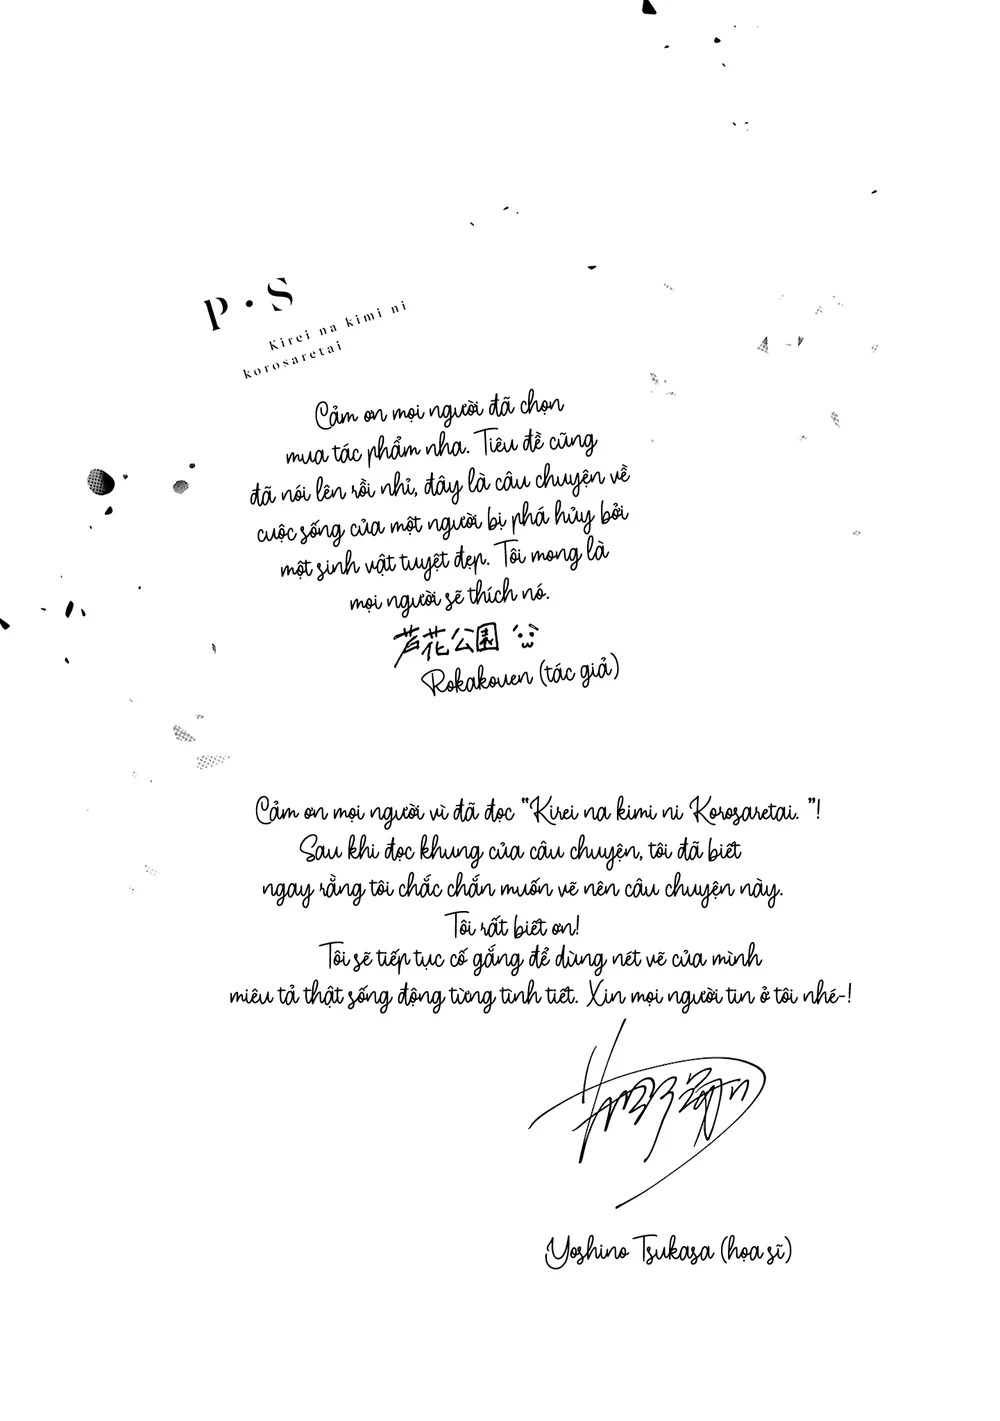 P • S
Kirei na kimi ni
korosaretai
Cảm ơn mọi người đã chọn
mua tác phẩm nha. Tiêu đề cũng
đã nói lên rồi nhỉ, đây là câu chuyện về
cuộc sống của một người bị phá hủy bởi
một sinh vật tuyệt đẹp. Tôi mong là
mọi người sẽ thích nó.
芦花公園
Rokakouen (tác giả)
Cảm ơn mọi người vì đã đọc "Kirei na kimi ni Korosaretai. "!
Sau khi đọc khung của câu chuyện, tôi đã biết
ngay rằng tôi chắc chắn muốn vẽ nên câu chuyện này.
Tôi rất biết ơn!
Tôi sẽ tiếp tục cố gắng để dùng nét vẽ của mình
miêu tả thật sống động từng tình tiết. Xin mọi người tin ở tôi nhé-!
Yoshino Tsukasa (họa sĩ)